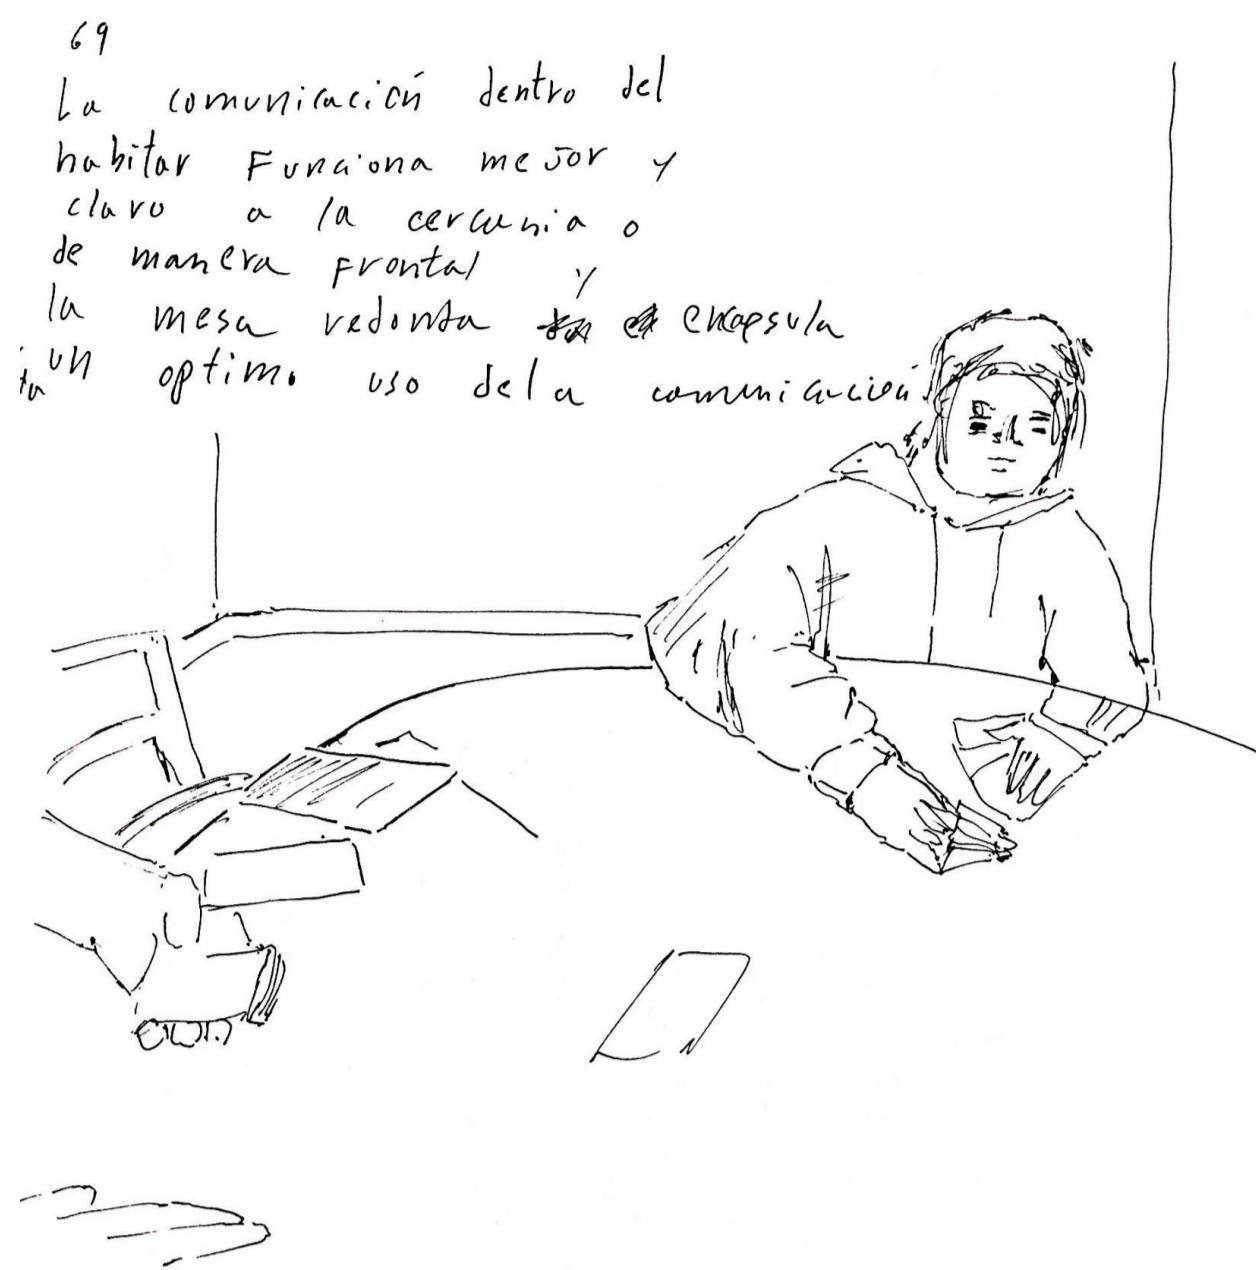 69
La comunicación dentro del
habitar Funciona mejor y
claro a la cercania o
de manera Frontal y
la mesa redonda encapsula
un optimo uso dela comunicación